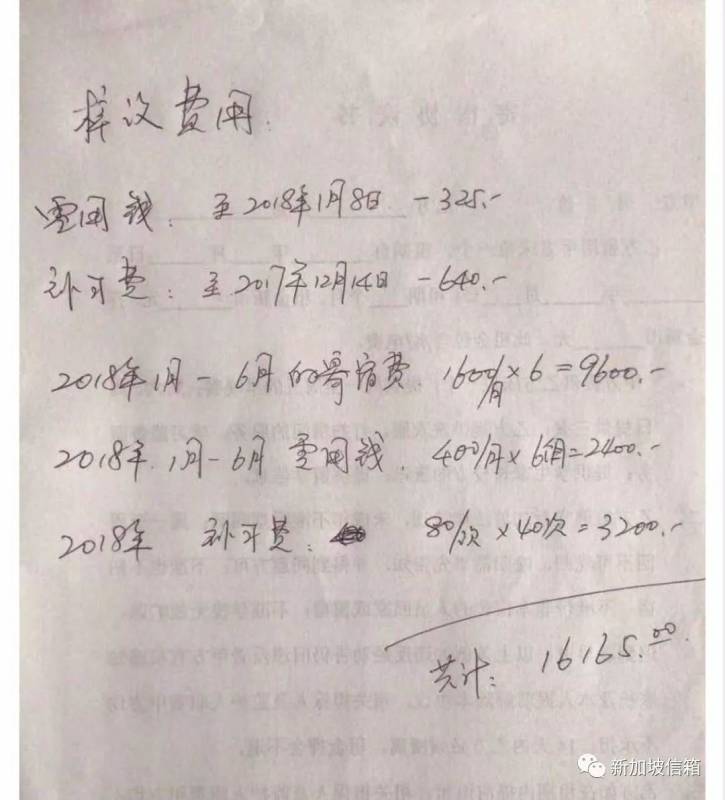 费用:
零用钱: 至2018年1月8日 -325.-
补习费: 至2017年12月14日 -640.-
2018年1月-6月的寄宿费 1600/月×6=9600.-
2018年.1月-6月 零用钱. 400/月×6个月=2400.-
2018年 补习费: 80/次×40次=3200.-
共计: 16165.00
新加坡信箱